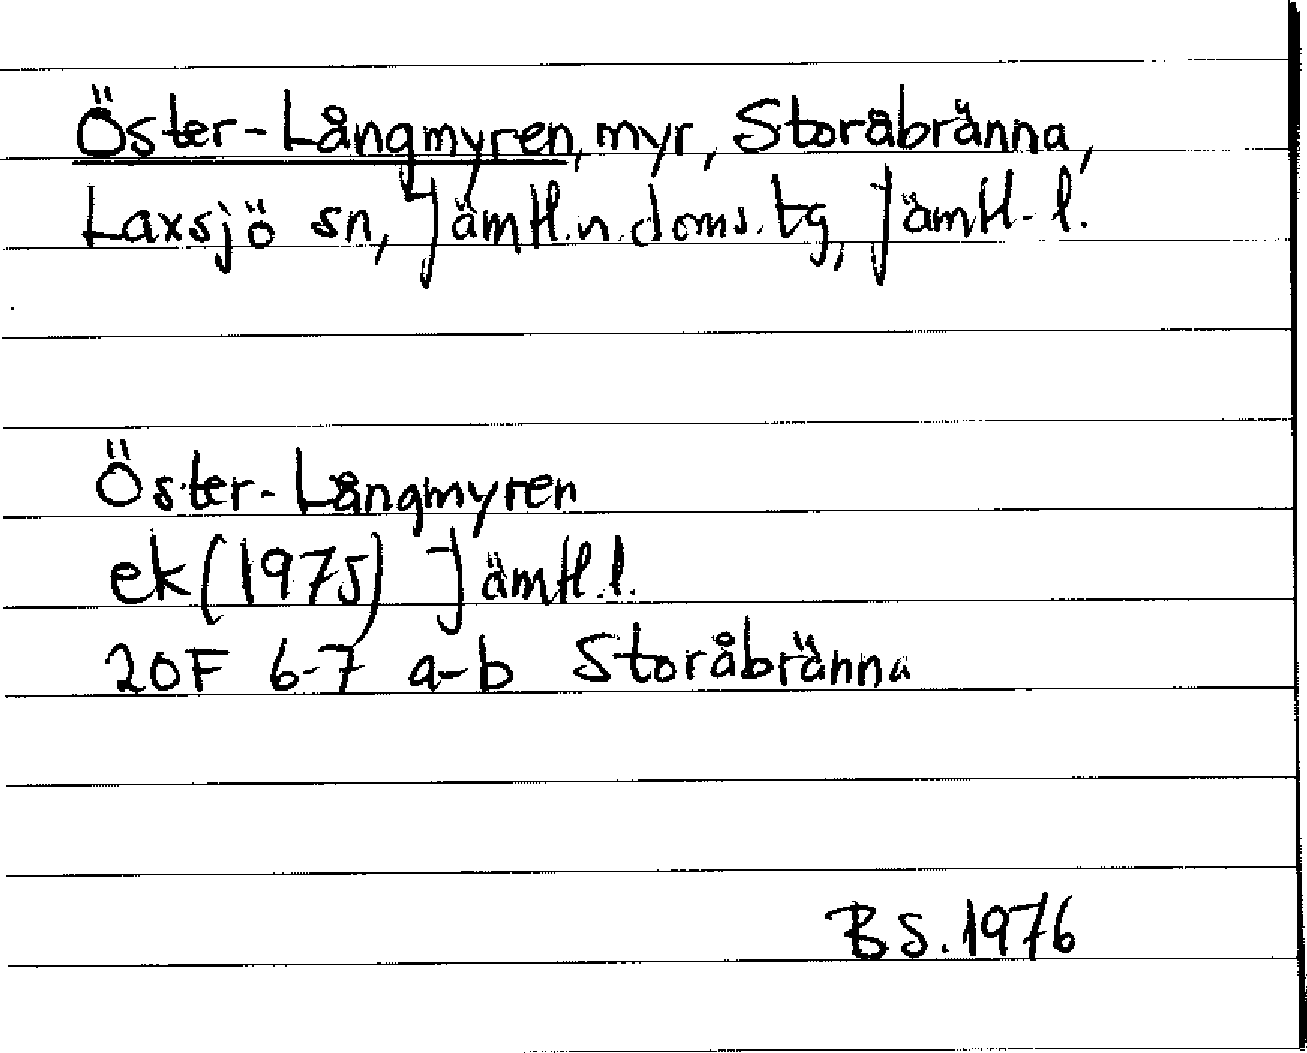 Öster-Långmyren, myr, Storåbränna,
Laxsjö sn, Jämtl.n.doms.tg, Jämtl.l.
Öster-Långmyren
ek(1975) Jämtl.l.
20F 6-7 a-b Storåbränna
BS.1976